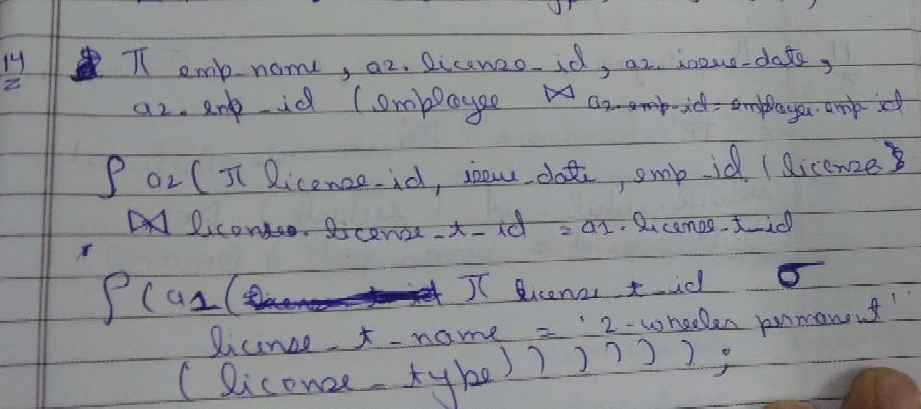 14 π emp_name, a2.license_id, a2.issue-date,
a2.emp_id (employee ⋈ a2.emp-id = employee.emp-id
ρ a2(π license-id, issue-date, emp_id (license
⋈ license.license-t-id = a1.license-t-id
ρ(a1( π license_t-id σ
license-t-name = '2-wheeler permanent'
(license-type))))));